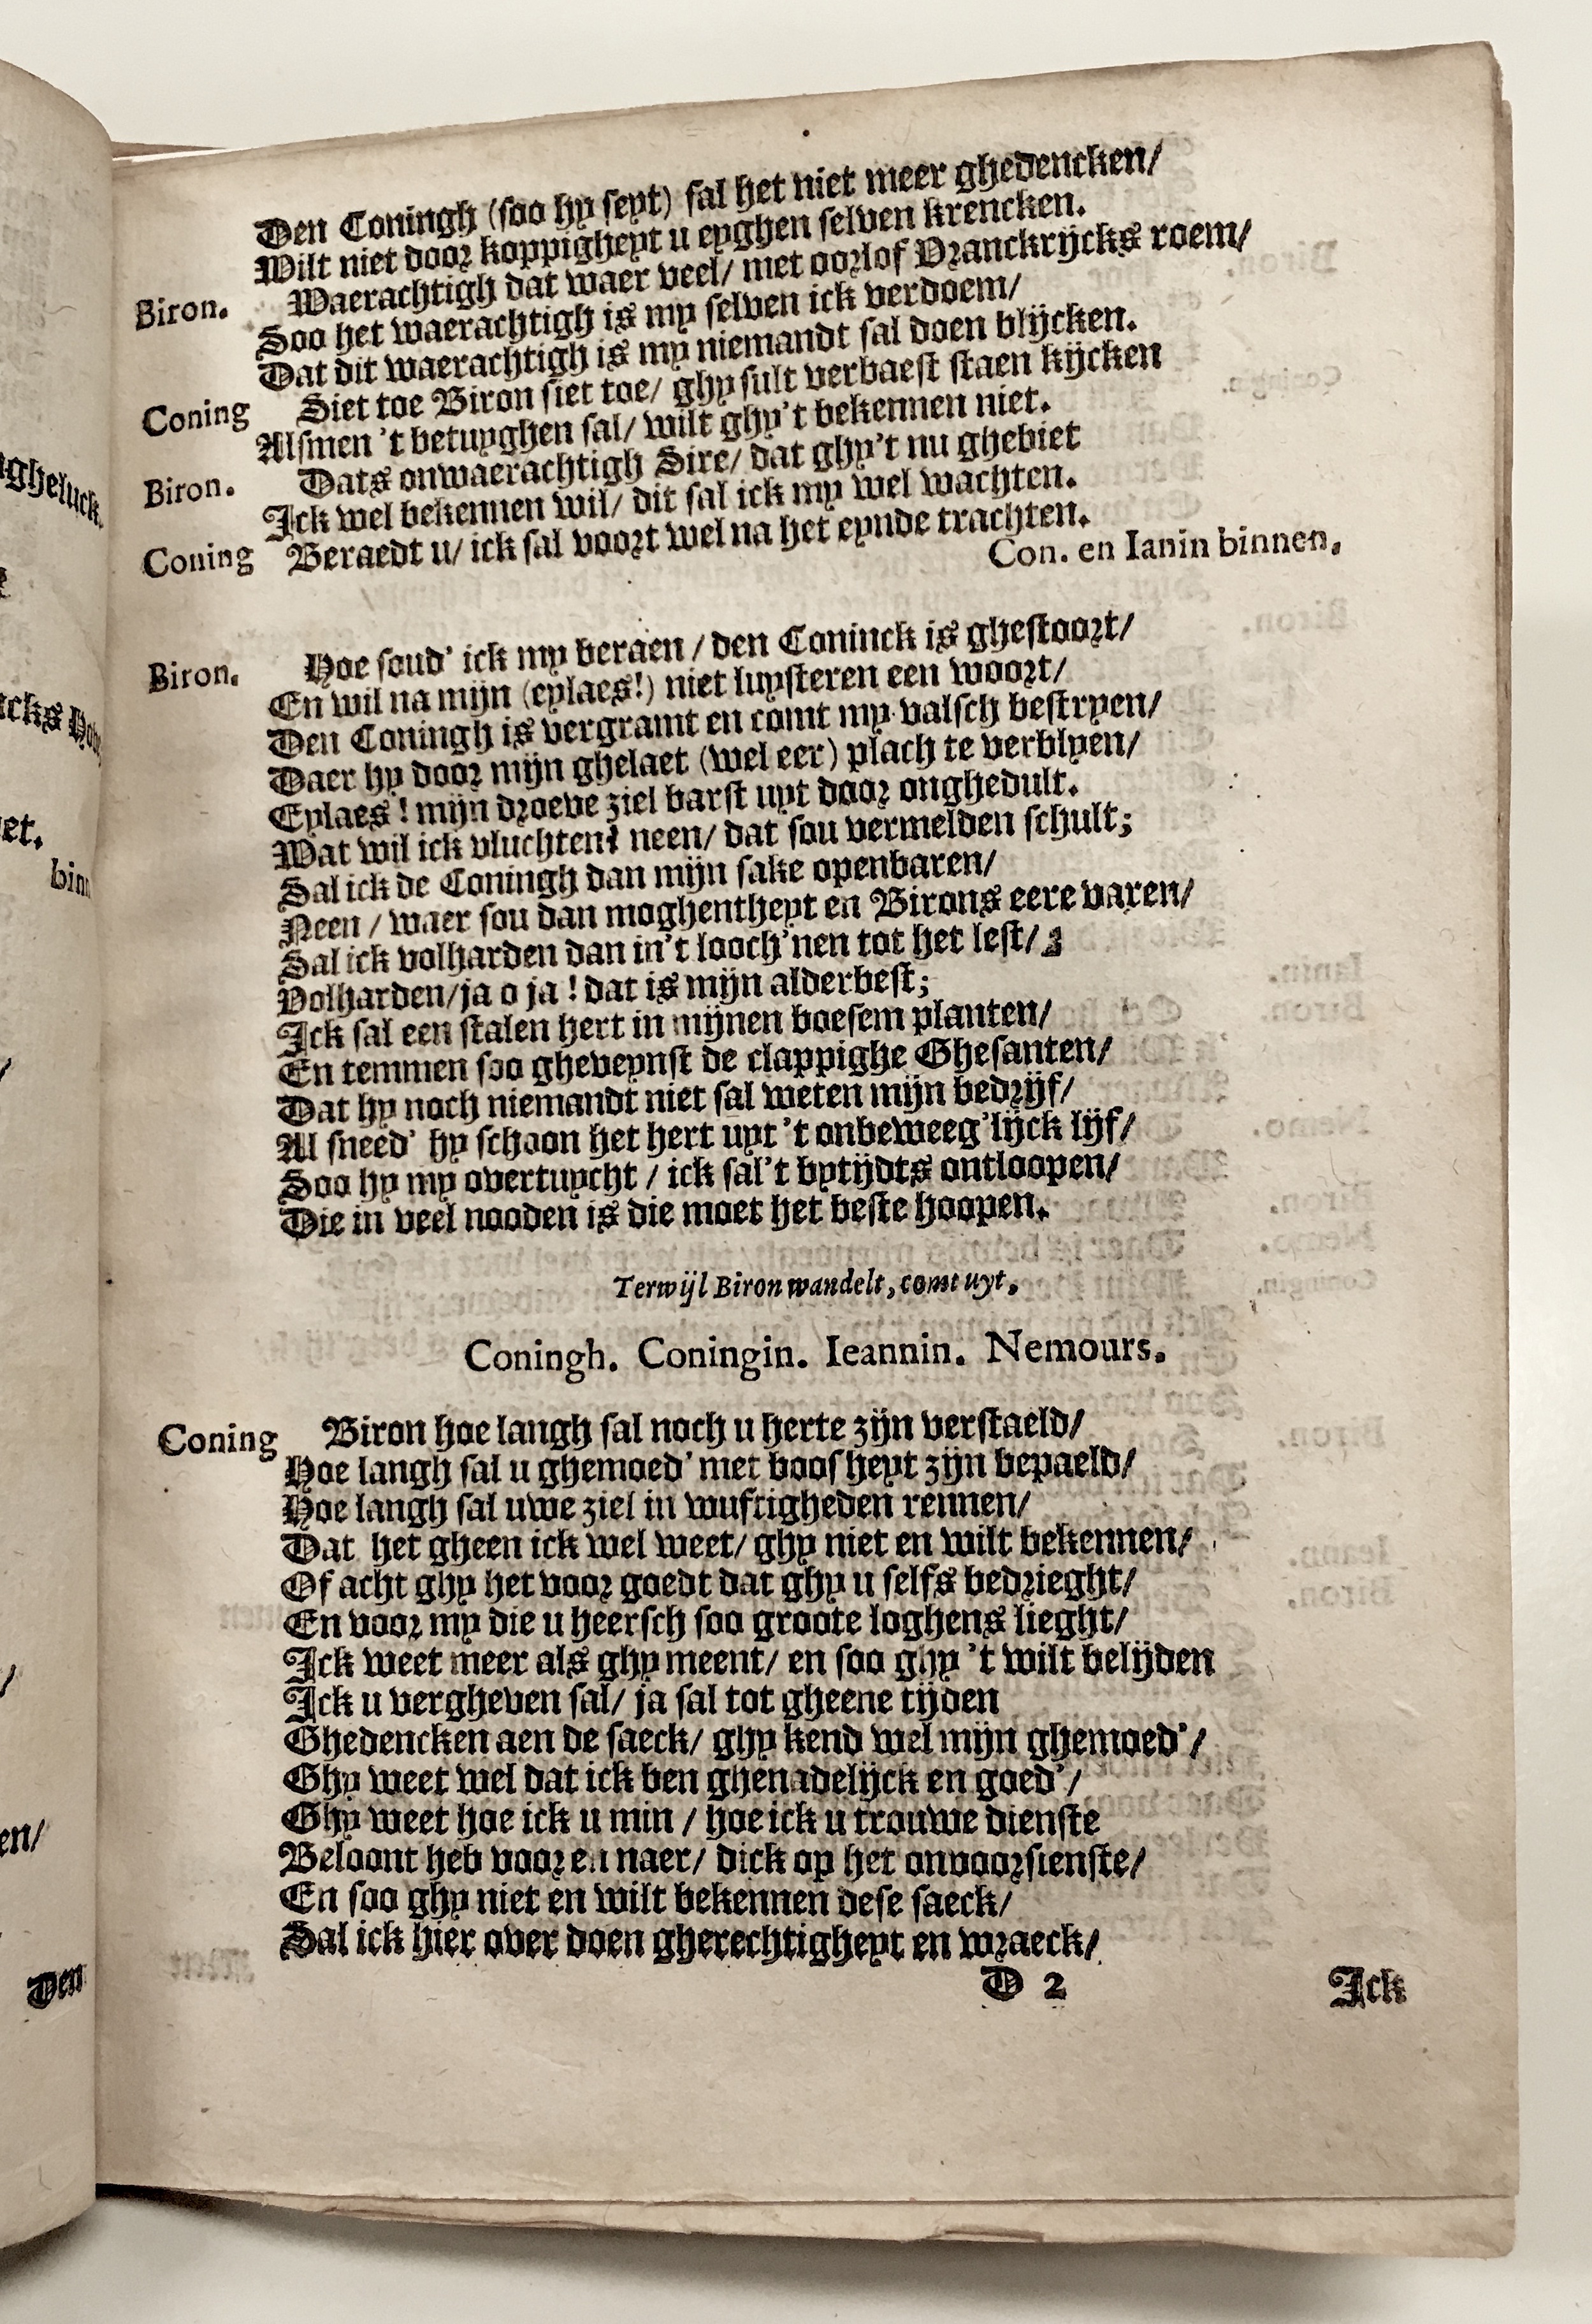 Den Coningh (soo hy seyt) sal het niet meer ghedencken/
Wilt niet door koppigheyt u eyghen selven krencken.
Biron. Waerachtigh dat waer veel/ met oorlof Vranckrijcks roem/
Soo het waerachtigh is my selven ick verdoem/
Dat dit waerachtigh is my niemandt sal doen blijcken.
Coning Siet toe Biron siet toe/ ghy sult verbaest staen kijcken
Alsmen 't betuyghen sal/ wilt ghy't bekennen niet.
Biron. Dats onwaerachtigh Sire/ dat ghy't nu ghebiet
Ick wel bekennen wil/ dit sal ick my wel wachten.
Coning Beraedt u/ ick sal voort wel na het eynde trachten.
Con. en Ianin binnen.
Biron. Hoe soud' ick my beraen / den Coninck is ghestoort/
En wil na mijn (eylaes!) niet luysteren een woort/
Den Coningh is vergramt en comt my valsch bestryen/
Daer hy door mijn ghelaet (wel eer) plach te verblyen/
Eylaes ! mijn droeve ziel barst uyt door onghedult.
Wat wil ick vluchten? neen/ dat sou vermelden schult;
Sal ick de Coningh dan mijn sake openbaren/
Neen / waer sou dan moghentheyt en Birons eere varen/
Sal ick volharden dan in't looch'nen tot het lest/
Volharden/ja o ja ! dat is mijn alderbest;
Ick sal een stalen hert in mijnen boesem planten/
En temmen soo gheveynst de clappighe Ghesanten/
Dat hy noch niemandt niet sal weten mijn bedrijf/
Al sneed' hy schoon het hert uyt 't onbeweeg'lijck lijf/
Soo hy my overtuycht / ick sal't bytijdts ontloopen/
Die in veel nooden is die moet het beste hoopen.
Terwijl Biron wandelt, comt uyt.
Coningh. Coningin. Ieannin. Nemours.
Coning Biron hoe langh sal noch u herte zijn verstaeld/
Hoe langh sal u ghemoed' met boosheyt zijn bepaeld/
Hoe langh sal uwe ziel in wuftigheden rennen/
Dat het gheen ick wel weet/ ghy niet en wilt bekennen/
Of acht ghy het voor goedt dat ghy u selfs bedrieght/
En voor my die u heersch soo groote loghens lieght/
Ick weet meer als ghy meent/ en soo ghy 't wilt belijden
Ick u vergheven sal/ ja sal tot gheene tijden
Ghedencken aen de saeck/ ghy kend wel mijn ghemoed'/
Ghy weet wel dat ick ben ghenadelijck en goed'/
Ghy weet hoe ick u min / hoe ick u trouwe dienste
Beloont heb voor en naer/ dick op het onvoorsienste/
En soo ghy niet en wilt bekennen dese saeck/
Sal ick hier over doen gherechtigheyt en wraeck/
D 2 Ick